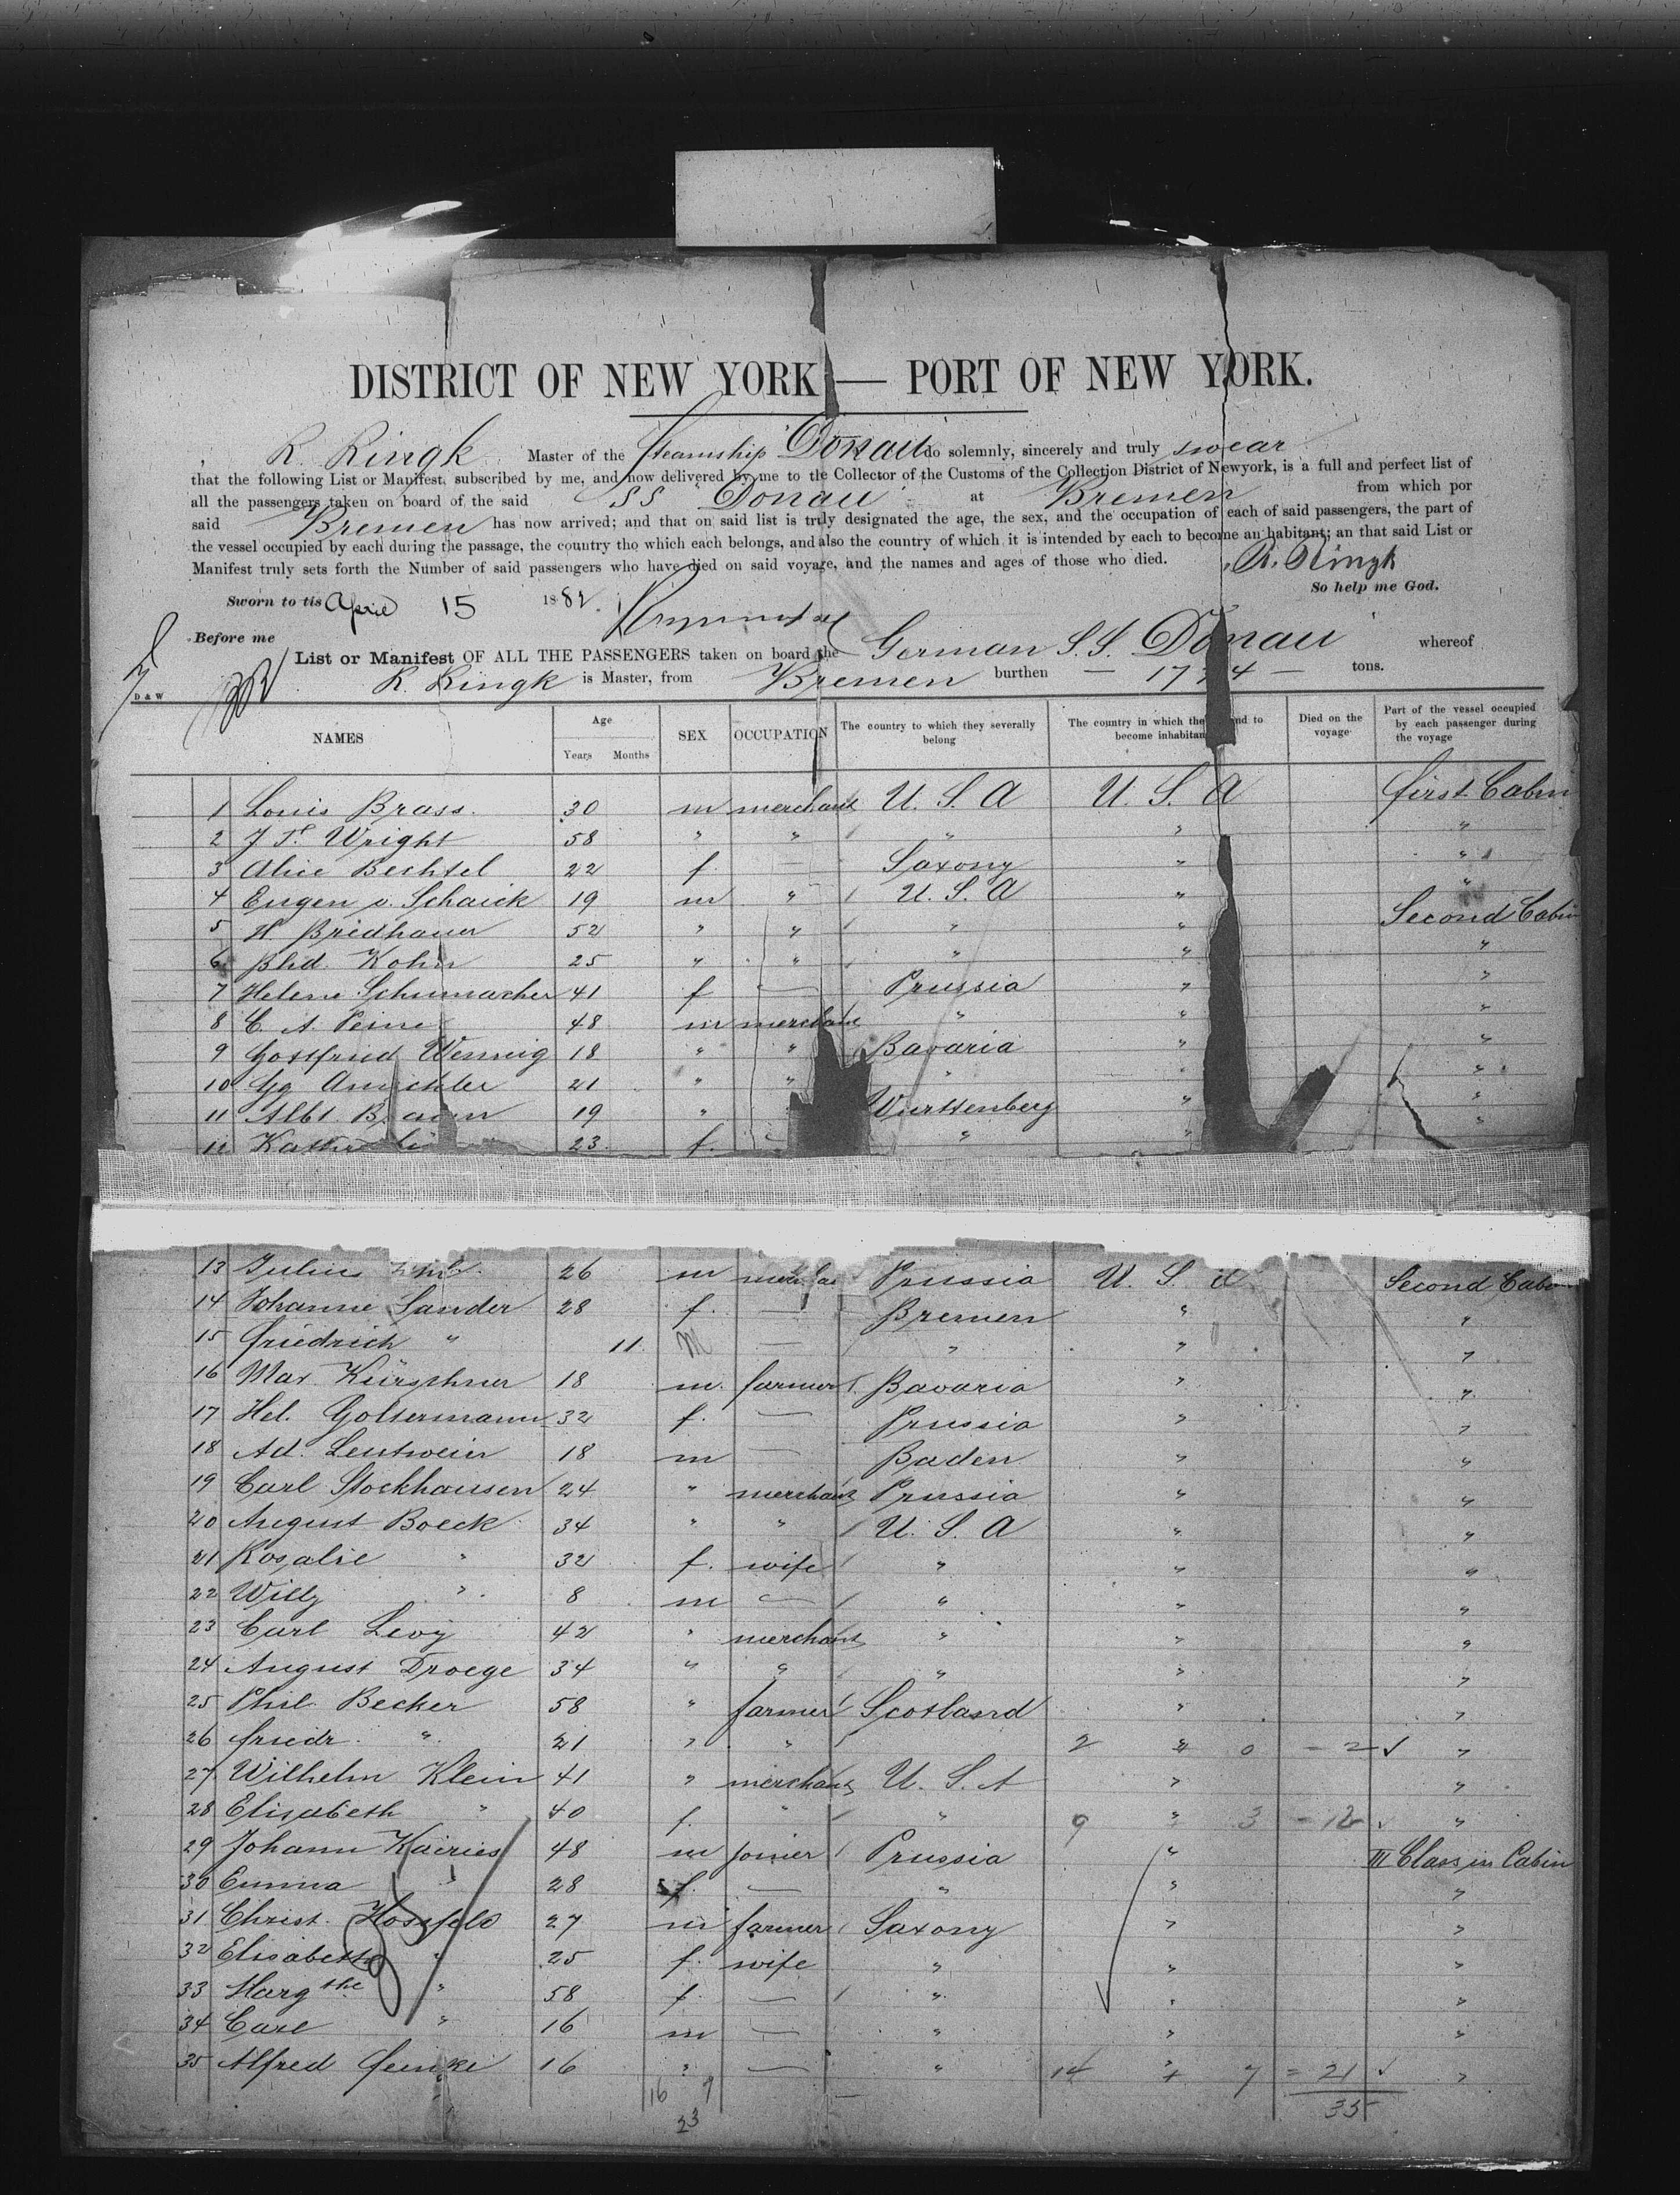 DISTRICT OF NEW YORK — PORT OF NEW YORK.
R. Ringk Master of the Steamship "Donau" do solemnly, sincerely and truly swear
that the following List or Manifest, subscribed by me, and now delivered by me to tle Collector of the Customs of the Collection District of Newyork, is a full and perfect list of
all the passengers taken on board of the said SS "Donau" at Bremen from which por
said Bremen has now arrived; and that on said list is truly designated the age, the sex, and the occupation of each of said passengers, the part of
the vessel occupied by each during the passage, the country tho which each belongs, and also the country of which it is intended by each to become an habitant; an that said List or
Manifest truly sets forth the Number of said passengers who have died on said voyage, and the names and ages of those who died. R. Ringk
So help me God.
Sworn to tis April 15 1882.
Before me
List or Manifest OF ALL THE PASSENGERS taken on board the German S.S. Donau whereof
D & W R. Ringk is Master, from Bremen burthen — tons.
NAMES Age Years Months SEX OCCUPATION The country to which they severally belong The country in which the nd to become inhabitan Died on the voyage Part of the vessel occupied by each passenger during the voyage
1 Louis Brass. 30 m merchant U. S. A U. S. A first Cabin
2 Wright 58 " " " " "
3 Alice Bechtel 22 f. — Saxony " "
4 Eugen v. Schaick 19 m " U. S. A " "
5 H. Bredhauer 52 " " " " Second Cabin
6 Kohn 25 " " " " "
7 Helene Schumacher 41 f — Prussia " "
8 C. A. Peine 48 m merchant " " "
9 Gottfried Wennig 18 " " Bavaria " "
10 Gg 21 " " " " "
11 Albt 19 " Wurttenberg " "
12 23 f. " "
13 Julius 26 m Prussia U. S. A Second Cabin
14 Johanne Sander 28 f. — Bremen " "
15 Friedrich " 11 M — " " "
16 Max Kürschner 18 m. farmer Bavaria " "
17 Hel. Goltermann 32 f. — Prussia " "
18 Ad. Leutweier 18 m — Baden " "
19 Carl Stockhausen 24 " merchant Prussia " "
20 August Boeck 34 " " U. S. A " "
21 Rosalie " 32 f. wife " " "
22 Willy " 8 m — " " "
23 Carl Levy 42 " merchant " " "
24 August Droege 34 " " " " "
25 Phil. Becker 58 " farmer Scotland " "
26 Friedr. " 21 " " 2 " 0 - 2 ✓ "
27 Wilhelm Klein 41 " merchant U. S. A " "
28 Elisabeth " 40 f. " " 9 " 3 - 12 ✓ "
29 Johann Kairies 48 m joiner Prussia " III Class in Cabin
30 Emma " 28 f. — " " "
31 Christ. Hossfeld 27 m farmer Saxony " "
32 Elisabeth " 25 f. wife " " "
33 Margthe " 58 f — " " "
34 Carl " 16 m — " " "
35 Alfred 16 " — " 14 " 7 = 21 ✓ "
16 7 35
23